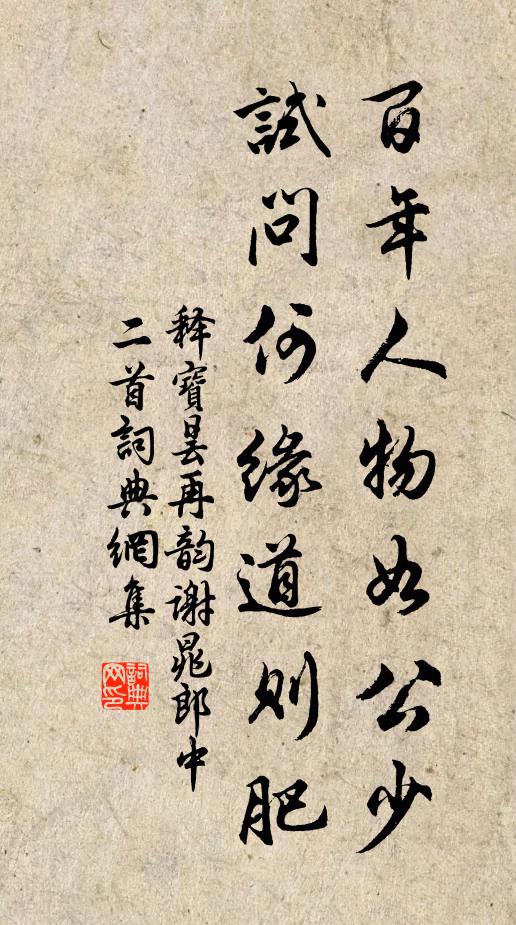 百年人物如公少
試問何緣道則肥
释寶昙再韵谢晁郎中
二首詞典網集
詞典
网印